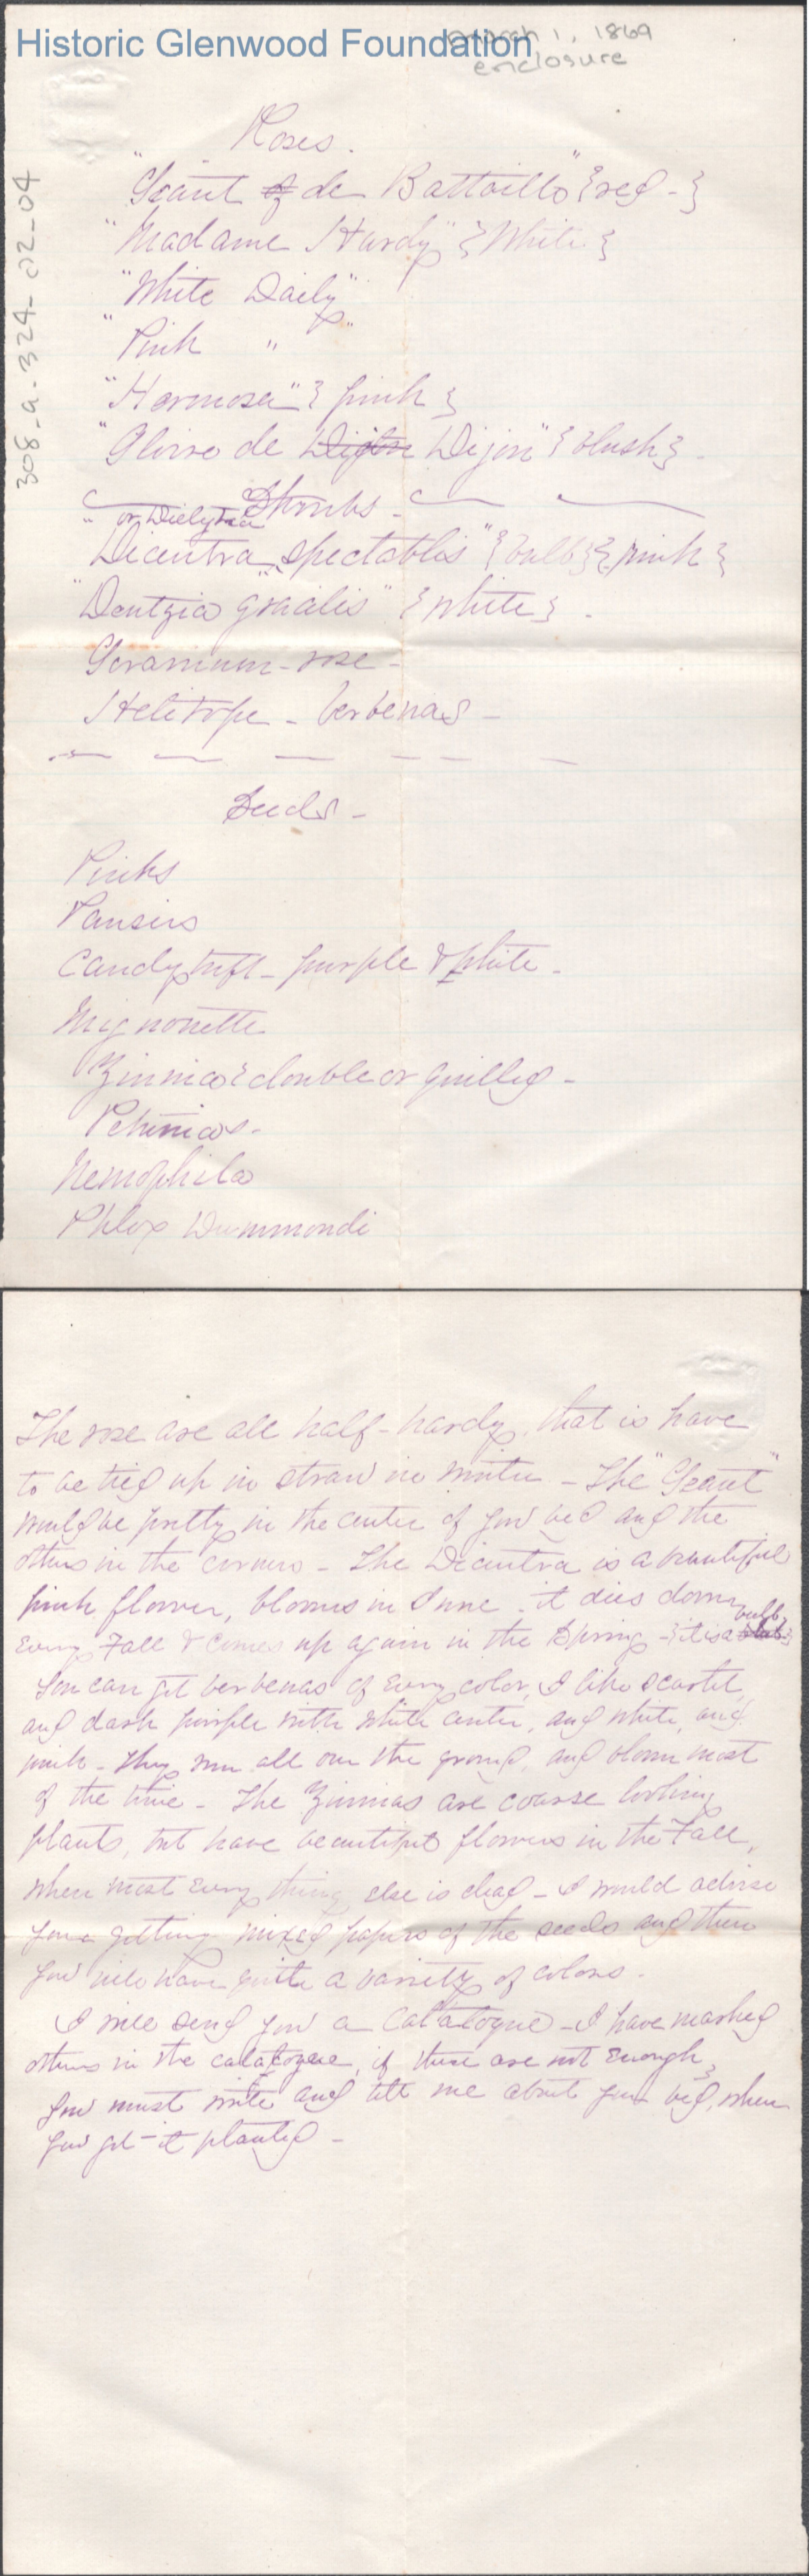 Historic Glenwood Foundation
March 1, 1869
enclosure
308-a-324-02-04
Roses.
"Geant of de Battaills" {red-}
"Madame Hardy" {White}
"White Daily"
"Pink " "
"Hermosa" {pink}
"Gloire de Dijon Dijon" {blush}.
Shrubs-
or Dielytra
"Dicentra spectablis" {bulb} {pink}
"Deutzia gracilis" {white}.
Geranium-rose-
Heletrope - verbenas-
Seeds-
Pinks
Pansies
Candytuft - purple & white-
Mignonette
Zinnia {double or quilled-
Petunias-
Nemophila
Phlox Drummondi
The rose are all half-hardy, that is have
to be tied up in straw in winter - The "Geant"
would be pretty in the center of your bed and the
others in the corners - The Dicentra is a beautiful
pink flower, blooms in June. it dies down
every Fall & comes up again in the Spring - {it is a bulb}
You can get verbenas of every color, I like scarlet,
and dark purple with white center, and white, and
pink - They run all over the ground, and bloom most
of the time - The Zinnias are coarse looking
plants, but have beautiful flowers in the Fall,
when most every thing else is dead - I would advise
your getting mixed papers of the seeds and then
you will have quite a variety of colors.
I will send you a Catalogue - I have marked
others in the catalogue, if these are not enough,
You must write and tell me about your bed, when
you get it planted-